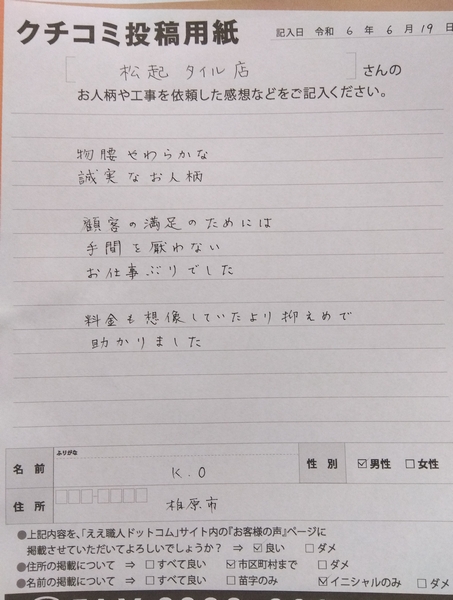 クチコミ投稿用紙
記入日 令和 6 年 6 月 19 日
[ 松起 タイル店 ] さんの
お人柄や工事を依頼した感想などをご記入ください。
物腰やわらかな
誠実なお人柄
顧客の満足のためには
手間を厭わない
お仕事ぶりでした
料金も想像していたより抑えめで
助かりました
ふりがな
名前 K.O 性別 ☑男性 □女性
住所 柏原市
●上記内容を、「ええ職人ドットコム」サイト内の『お客様の声』ページに
掲載させていただいてよろしいでしょうか? ⇒ ☑良い □ダメ
●住所の掲載について ⇒ □すべて良い ☑市区町村まで □ダメ
●名前の掲載について ⇒ □すべて良い □苗字のみ ☑イニシャルのみ □ダメ